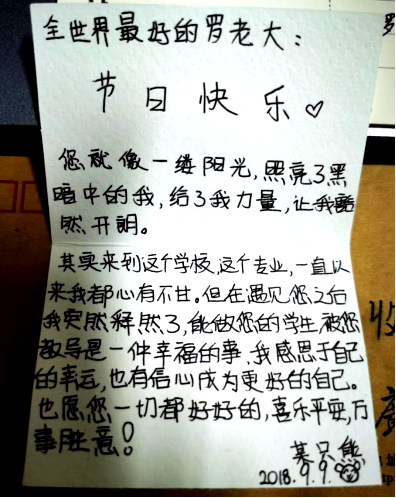 全世界最好的罗老大：
节日快乐♡
您就像一缕阳光，照亮了黑
暗中的我，给了我力量，让我豁
然开朗。
其实来到这个学校，这个专业，一直以
来我都心有不甘。但在遇见您之后
我突然释然了，能做您的学生，被您
教导是一件幸福的事、我感恩于自己
的幸运，也有信心成为更好的自己。
也愿您一切都好好的，喜乐平安，万
事胜意！
某只熊
2018.9.9.
罗
收